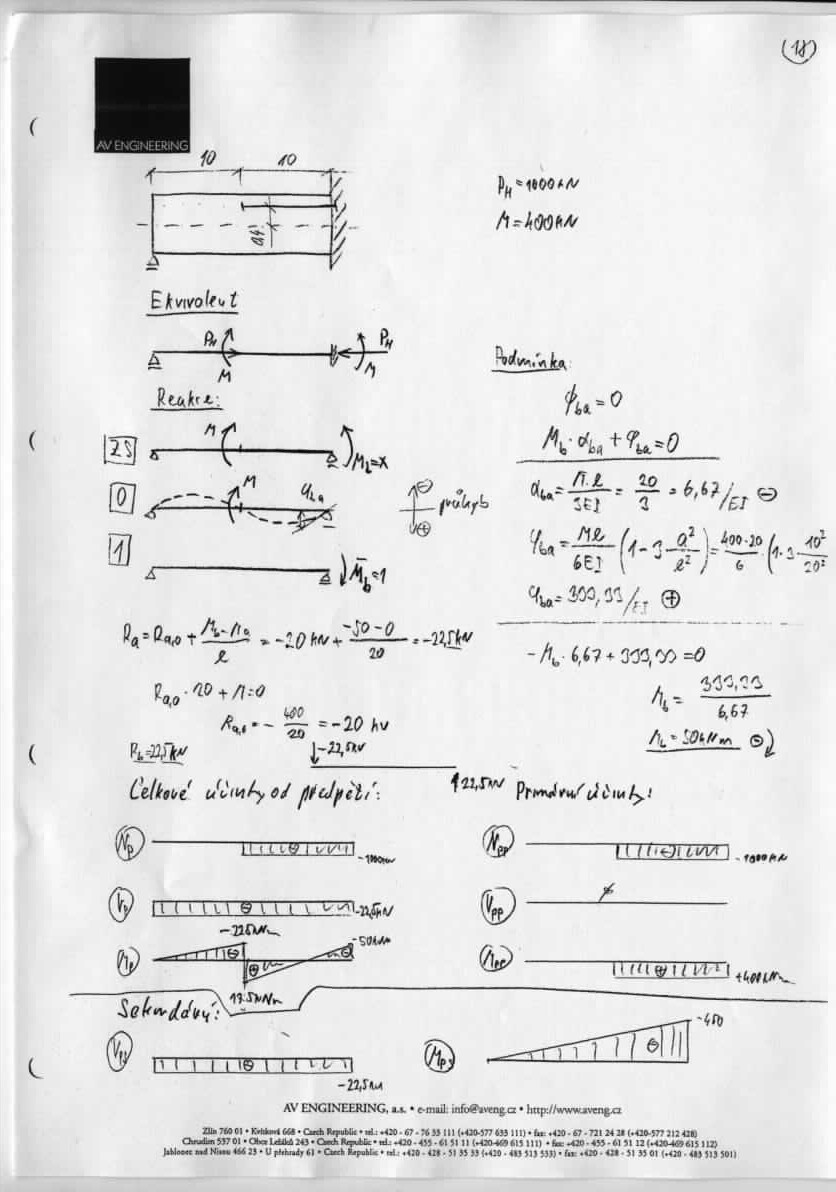 (18)
AV ENGINEERING
10 10
P_H = 1000kN
M = 400kN
0,4
Ekvivalent
P_H P_H
M M
Podmínka:
ϕ_ba = 0
M_b · α_ba + φ_ba = 0
Reakce:
ZS M M_b = x
0 M φ_ba ⊖ průhyb ⊕
1 M̄_b = 1
α_ba = M.l / 3EI = 20 / 3 = 6,67/EI ⊖
φ_ba = Ml / 6EI (1 - 3 · a² / l²) = 400·20 / 6 · (1 · 3 · 10² / 20²
φ_ba = 333,33/EI ⊕
R_a = R_a,0 + M_b - M_a / l = -20 kN + -50 - 0 / 20 = -22,5kN
R_a,0 · 20 + M = 0
R_a,0 = - 400 / 20 = -20 kN
R_b = 22,5kN
-22,5kN
22,5kN
- M_b · 6,67 + 333,33 = 0
M_b = 333,33 / 6,67
M_b = 50kNm ⊖
Celkové účinky od předpětí:
Primární účinky:
N_p ⊖ -1000kN
N_pp ⊖ -1000kN
V_p ⊖ -22,5kN
V_pp
-225kNm -50kNm
M_p ⊖ ⊕ ⊖
175kNm
M_pp ⊕ +400kNm
Sekundární:
V_ps ⊖ -22,5kN
M_ps ⊖ -450
AV ENGINEERING, a.s. • e-mail: info@aveng.cz • http://www.aveng.cz
Zlín 760 01 • Kvítková 668 • Czech Republic • tel.: +420 - 67 - 76 33 111 (+420-577 633 111) • fax: +420 - 67 - 721 24 28 (+420-577 212 428)
Chrudim 537 01 • Obce Ležáků 243 • Czech Republic • tel.: +420 - 455 - 61 51 11 (+420-469 615 111) • fax: +420 - 455 - 61 51 12 (+420-469 615 112)
Jablonec nad Nisou 466 23 • U přehrady 61 • Czech Republic • tel.: +420 - 428 - 51 35 33 (+420 - 483 513 533) • fax: +420 - 428 - 51 35 01 (+420 - 483 513 501)